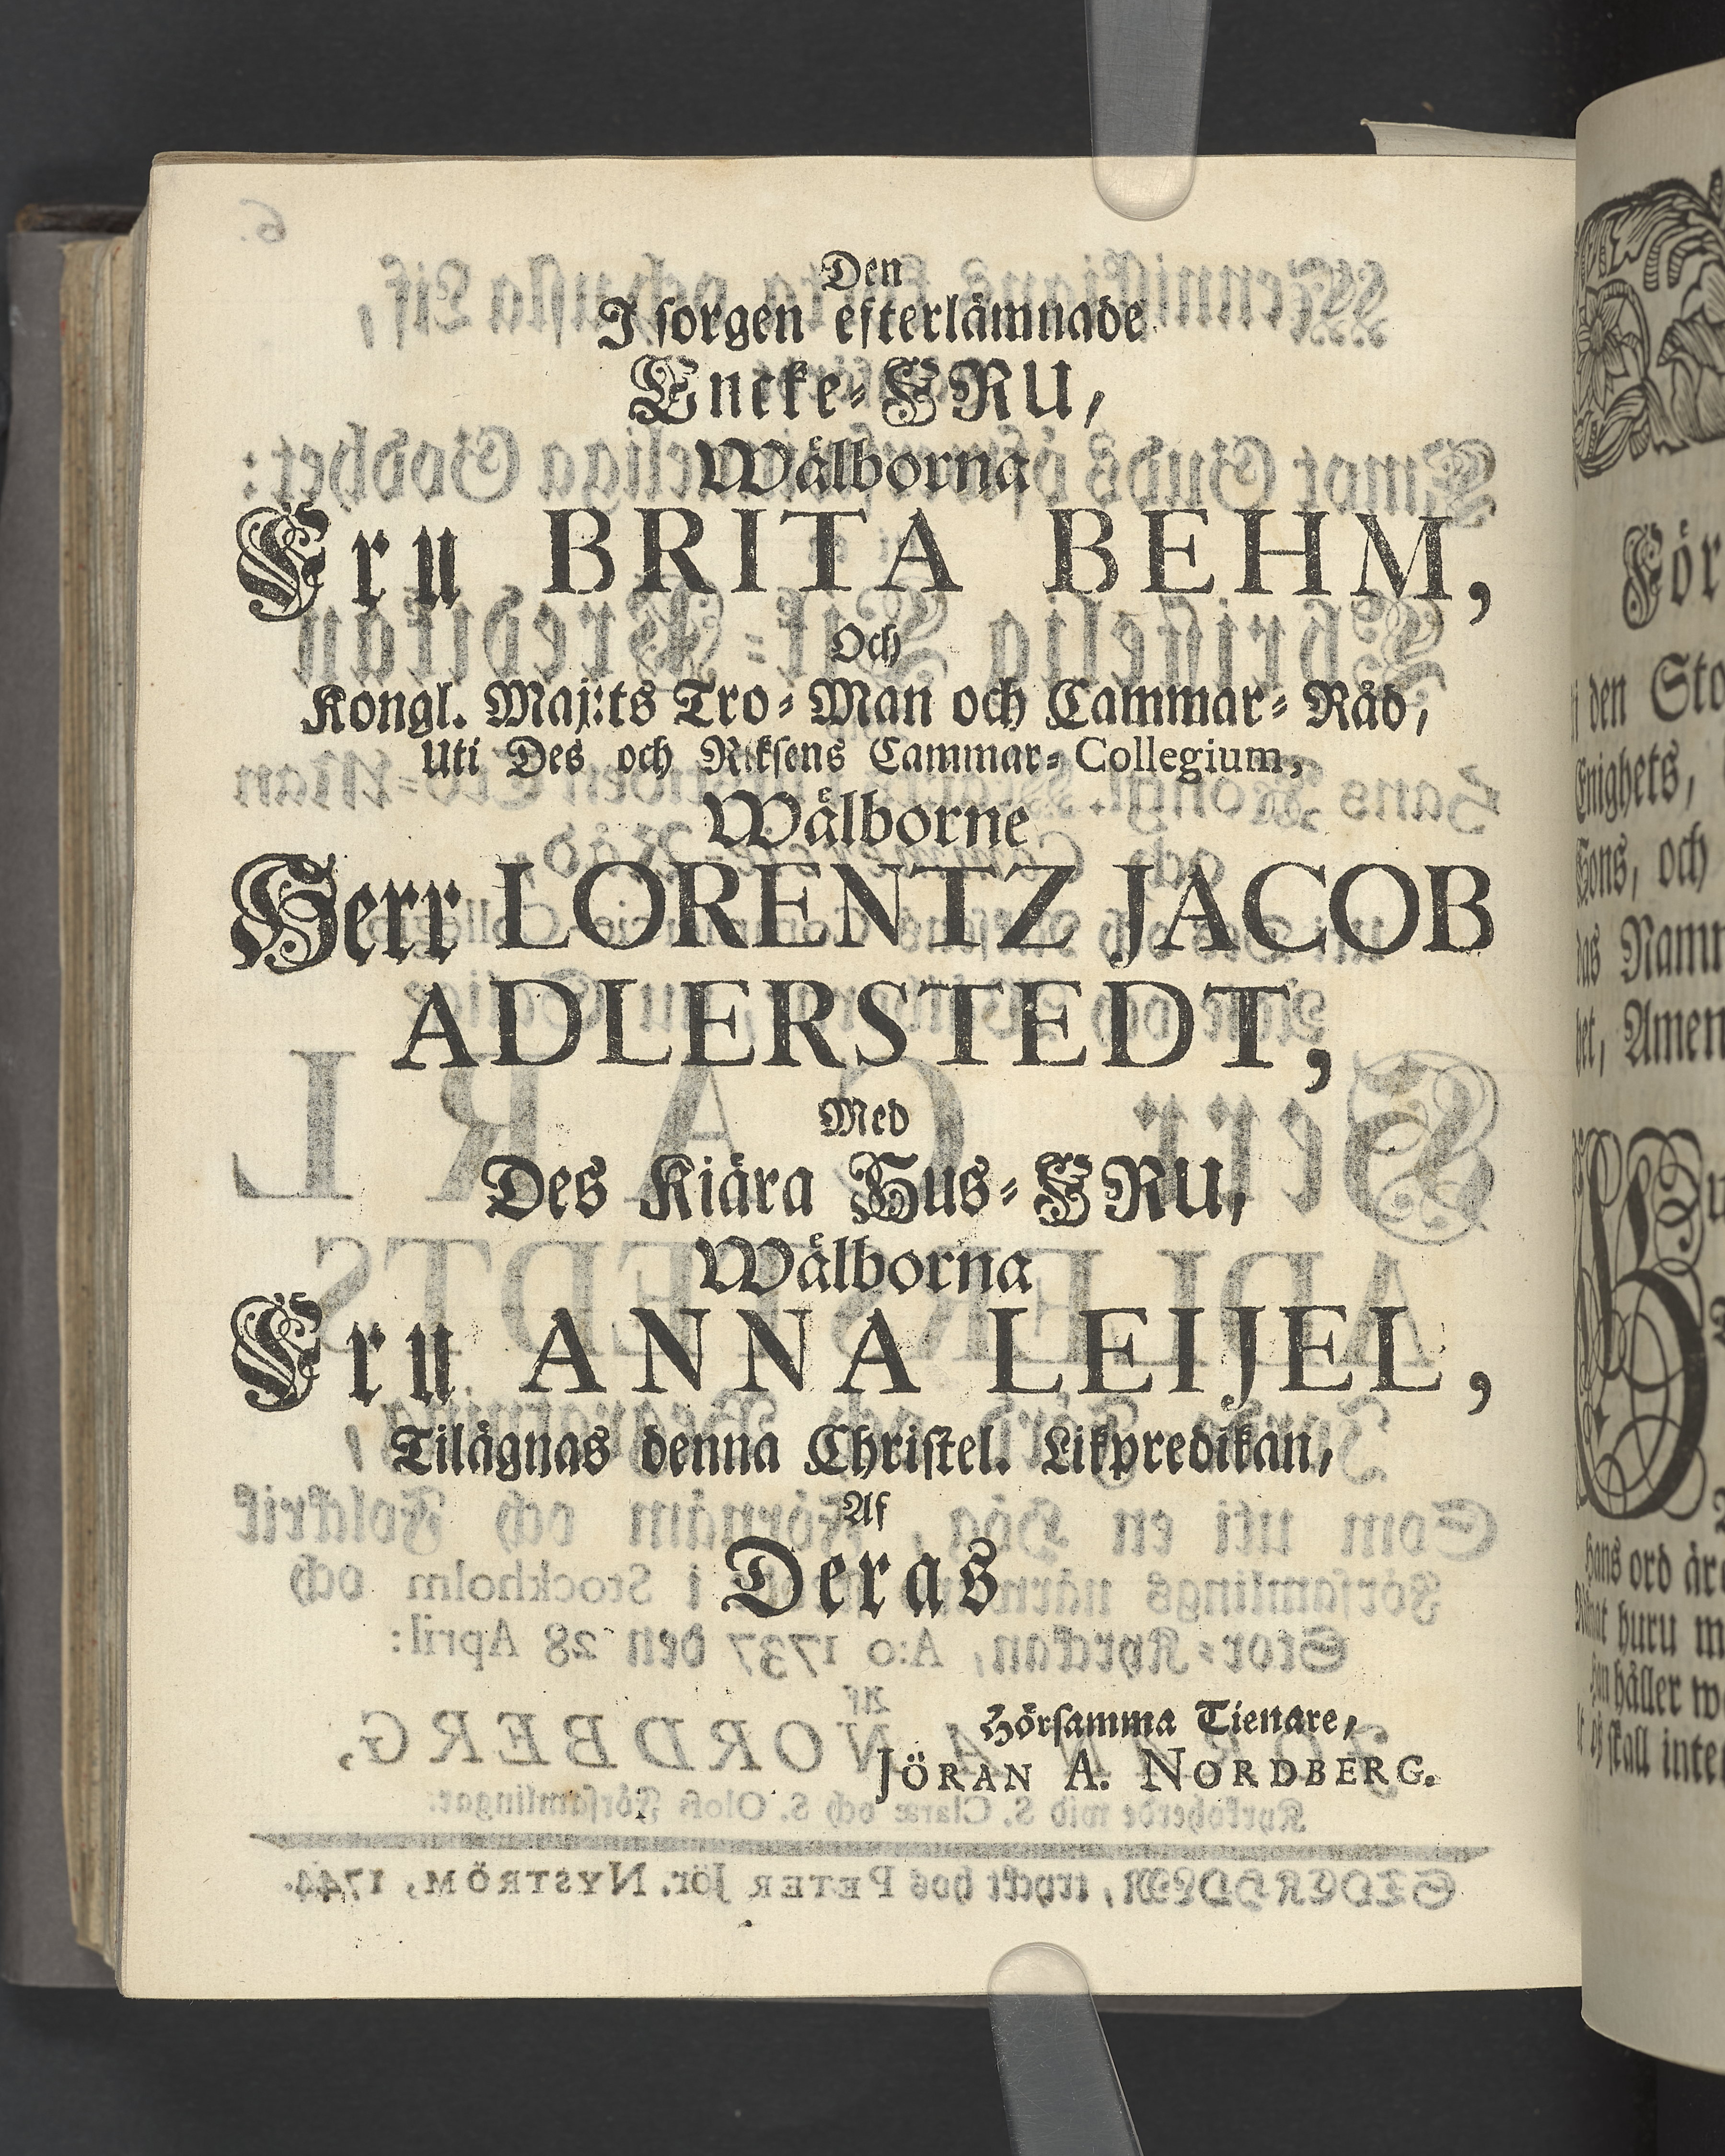 Den
I sorgen efterlämnade
Encke-FRU,
Wälborna
Fru BRITA BEHM,
Och
Kongl. Maj:ts Tro-Man och Cammar-Råd,
Uti Des och Riksens Cammar-Collegium,
Wälborne
Herr LORENTZ JACOB
ADLERSTEDT,
Med
Des Kiära Hus-FRU,
Wälborna
Fru ANNA LEIJEL,
Tilägnas denna Christel. Likpredikan,
Af
Deras
Hörsamma Tienare,
JÖRAN A. NORDBERG.
För
den Sto
Enighets,
Sons, och
das Namn
het, Amen
hans ord äre
huru m
håller we
skall inte